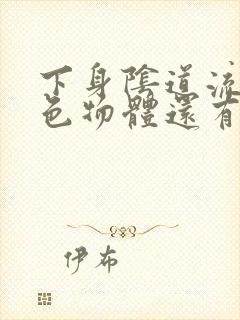 下身陰道流
色物體還有
伊布